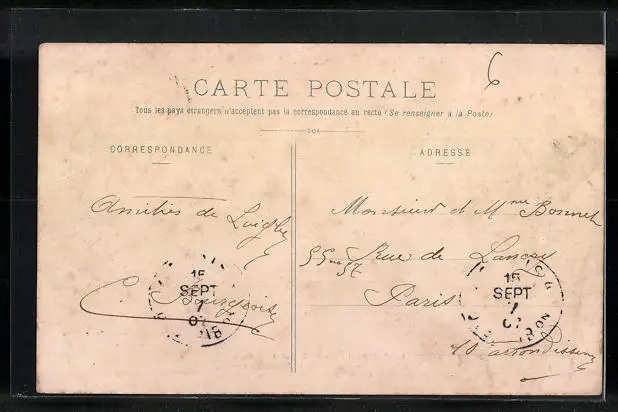 6
CARTE POSTALE
Tous les pays étrangers n'acceptent pas la correspondance au recto (Se renseigner à la Poste)
CORRESPONDANCE
Amitiés de
C. Bourgeois
15
SEPT
07
ADRESSE
Monsieur et Mme Bonnet
Rue de Lancry
Paris
10 arrondissem
15
SEPT
07